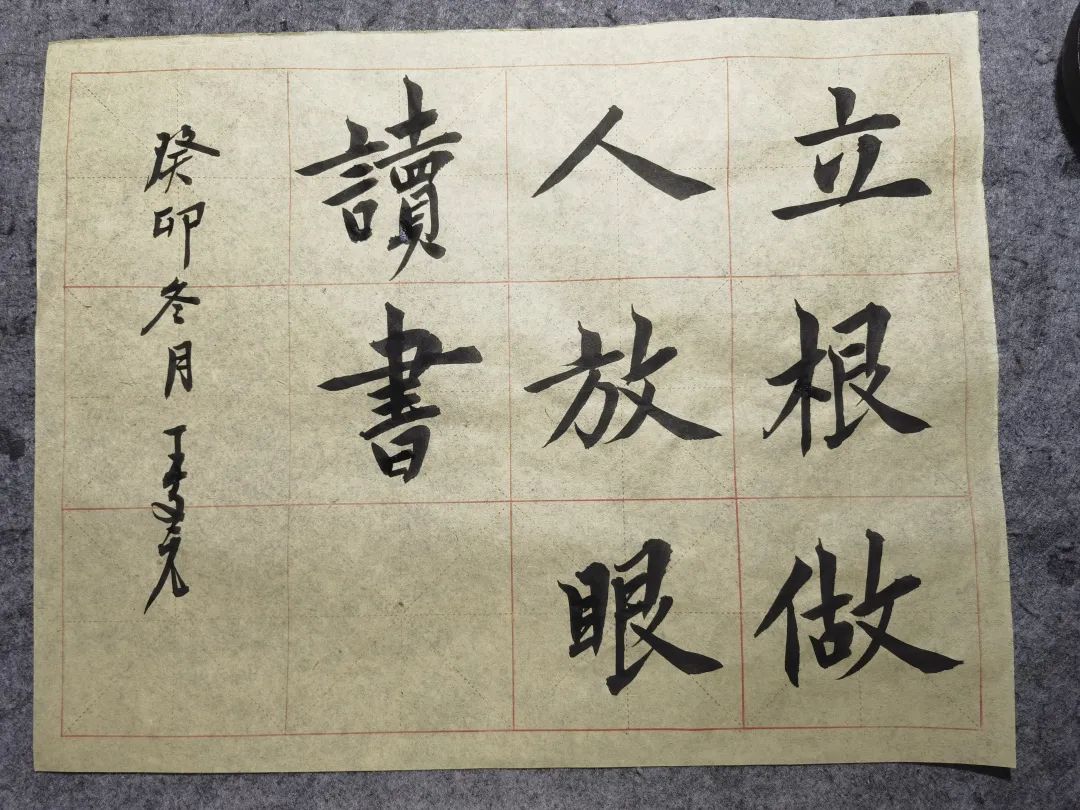 立根做
人放眼
讀書
癸卯冬月